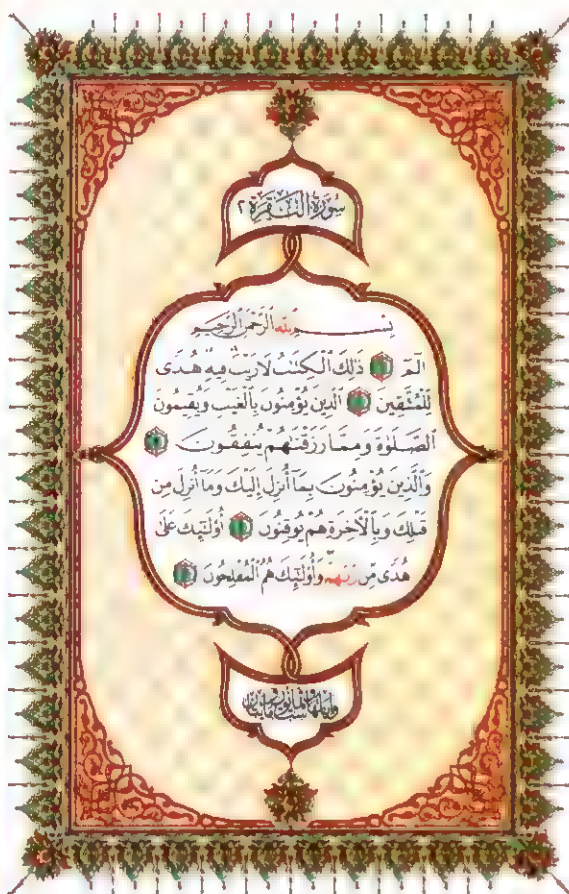 سُورَةُ الْبَقَرَةِ ٢
بِسْمِ ٱللَّهِ ٱلرَّحْمَٰنِ ٱلرَّحِيمِ
الٓمٓ ١ ذَٰلِكَ ٱلْكِتَٰبُ لَا رَيْبَ فِيهِ هُدًى
لِّلْمُتَّقِينَ ٢ ٱلَّذِينَ يُؤْمِنُونَ بِٱلْغَيْبِ وَيُقِيمُونَ
ٱلصَّلَوٰةَ وَمِمَّا رَزَقْنَٰهُمْ يُنفِقُونَ ٣
وَٱلَّذِينَ يُؤْمِنُونَ بِمَآ أُنزِلَ إِلَيْكَ وَمَآ أُنزِلَ مِن
قَبْلِكَ وَبِٱلْءَاخِرَةِ هُمْ يُوقِنُونَ ٤ أُو۟لَٰٓئِكَ عَلَىٰ
هُدًى مِّن رَّبِّهِمْ وَأُو۟لَٰٓئِكَ هُمُ ٱلْمُفْلِحُونَ ٥